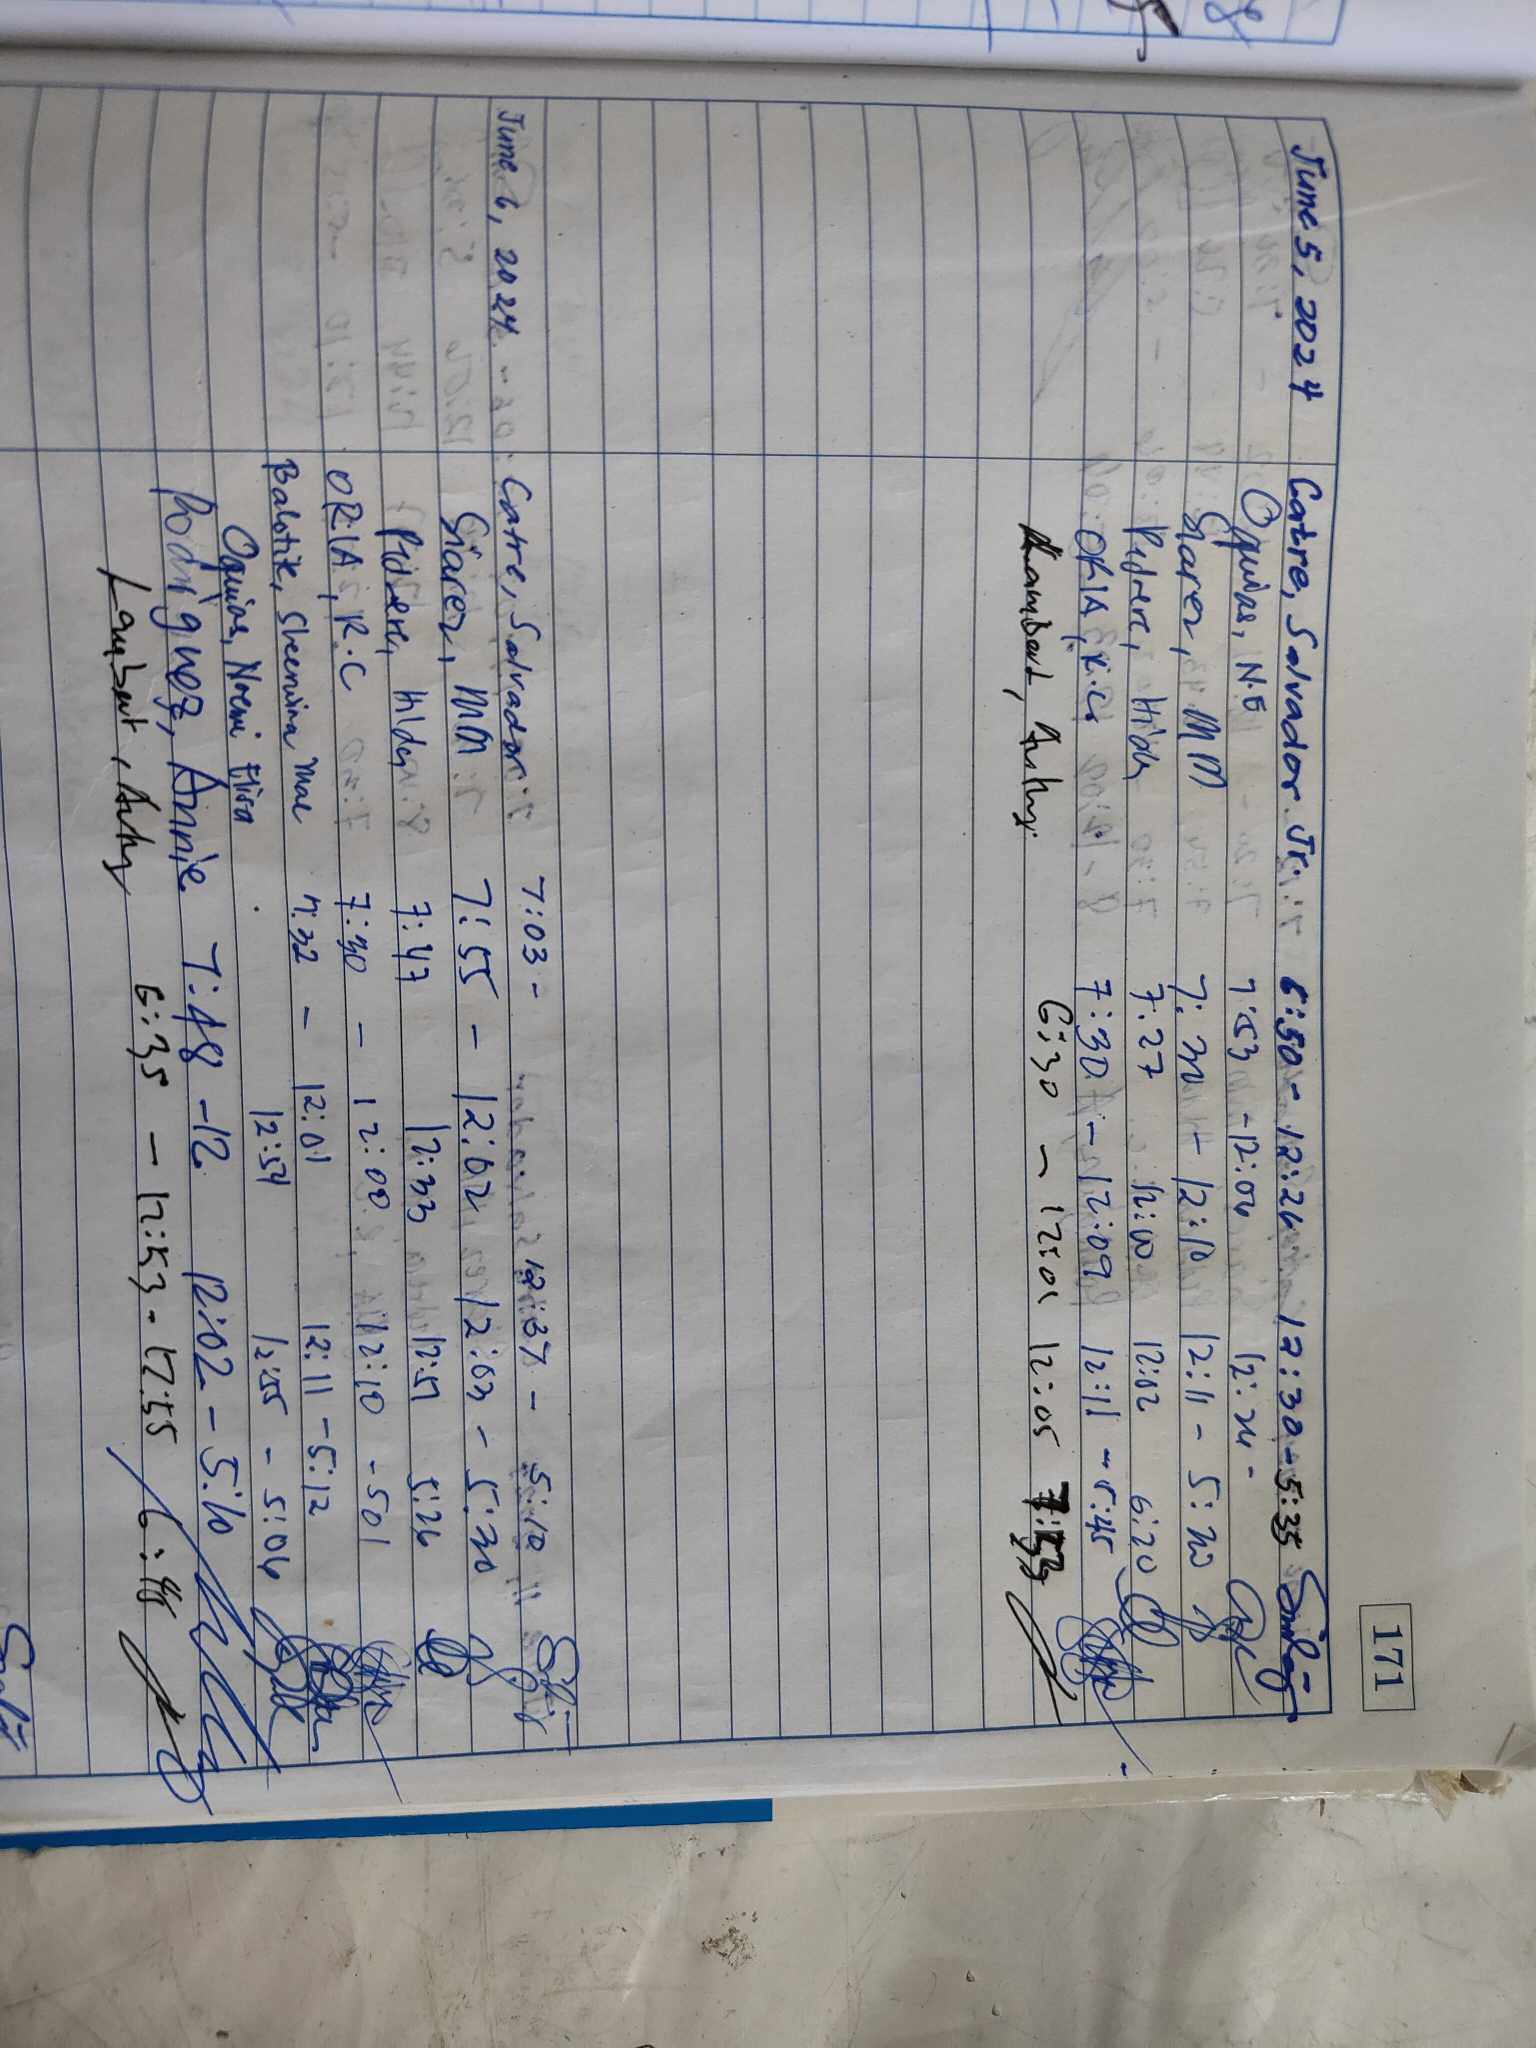 171
June 5, 2024 Catre, Salvador Jr. 6:50 - 12:26 12:30 - 5:35
Opinas, N.E 7:53 - 12:04 12:24 -
Suarez, MM 7:30 - 12:10 12:11 - 5:30
Pidere, Hilda 7:27 12:00 12:02 6:20
ORIA, R.C. 7:30 - 12:09 12:11 - 5:45
Lambert, 6:30 - 12:01 12:05
June 6, 2024 Catre, Salvador 7:03 - 12:37 - 5:10
Suarez, MM 7:55 - 12:02 12:03 - 5:30
Pidere, Hilda 7:47 12:33 12:51 5:26
ORIA, R.C 7:30 - 12:08 12:10 - 501
Balotite, Sheenina Mae 7:32 - 12:01 12:11 - 5:12
Opinas, Noemi Elisa 12:54 12:55 - 5:04
Rodriguez, Annie 7:48 - 12 12:02 - 5:10
Lambert, 6:35 - 12:53 - 12:55